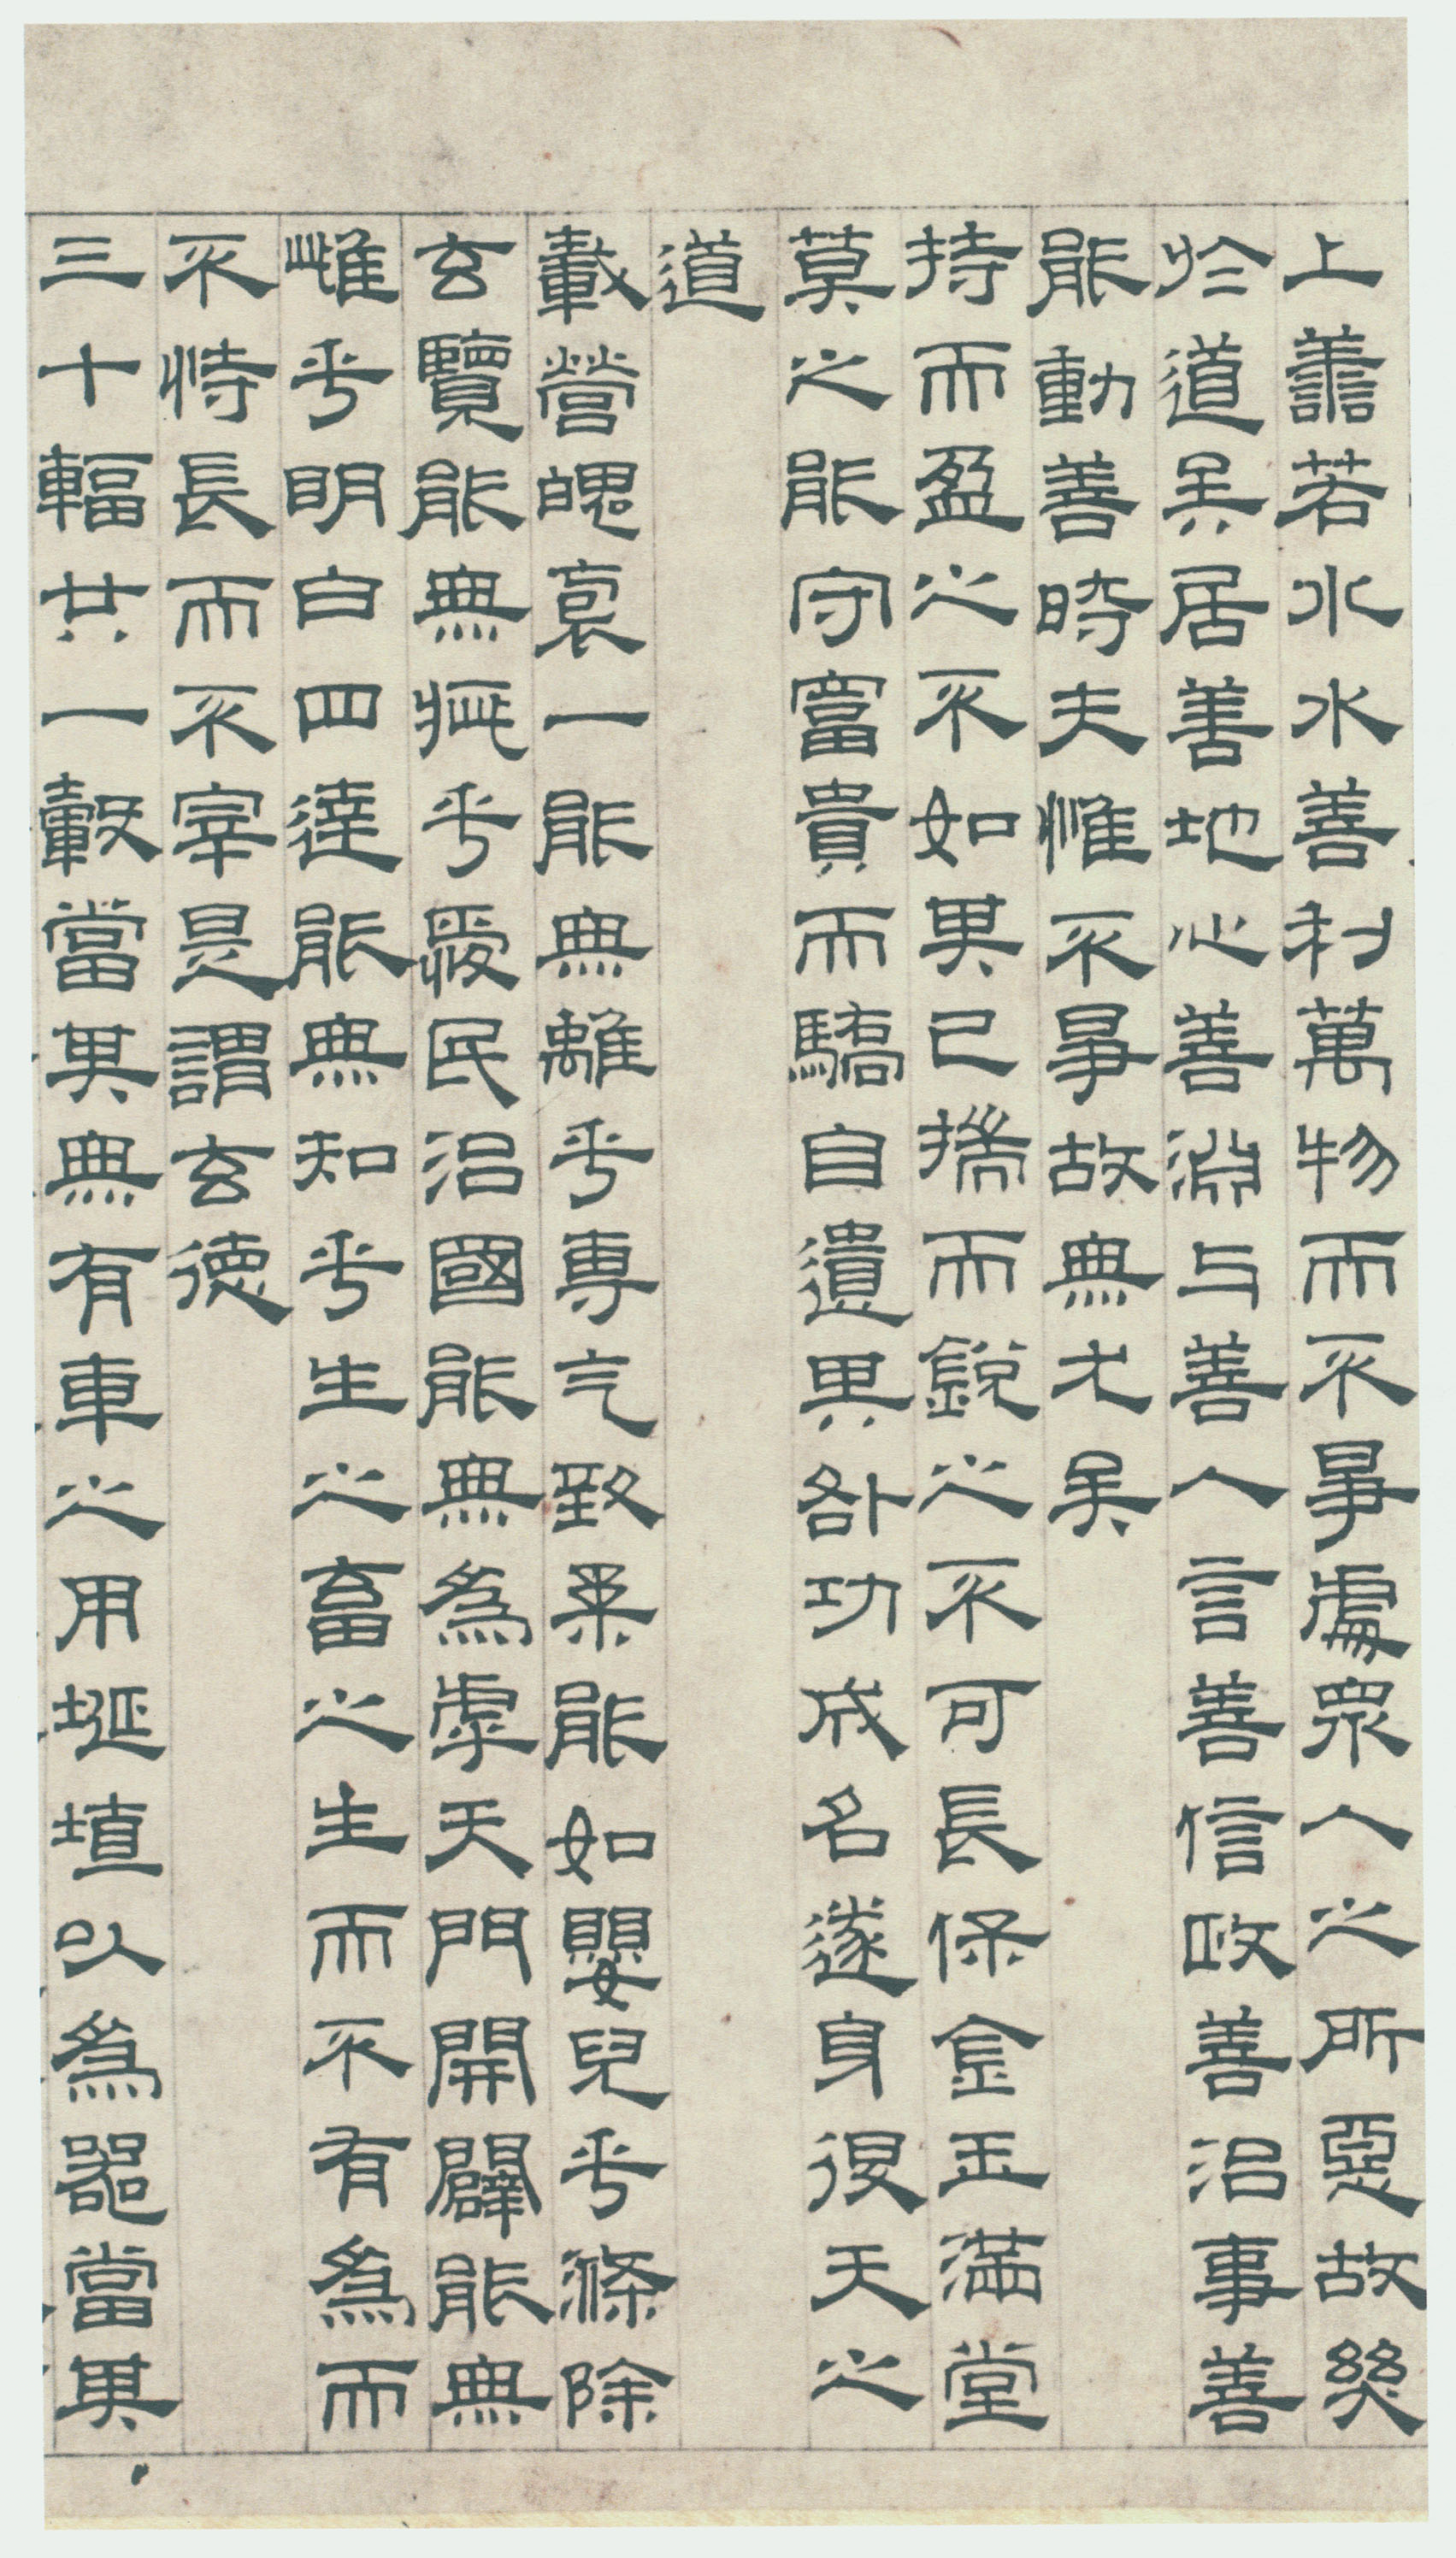 上善若水水善利萬物而不爭處眾人之所惡故幾
於道矣居善地心善淵与善人言善信政善治事善
能動善時夫惟不爭故無尤矣
持而盈之不如其已揣而銳之不可長保金玉滿堂
莫之能守富貴而驕自遺其咎功成名遂身後天之
道
載營魄裒一能無離乎專气致柔能如嬰兒乎滌除
玄覽能無疵乎愛民治國能無為虖天門開闢能無
雌乎明白四達能無知乎生之畜之生而不有為而
不恃長而不宰是謂玄德
三十輻共一轂當其無有車之用埏埴以為器當其